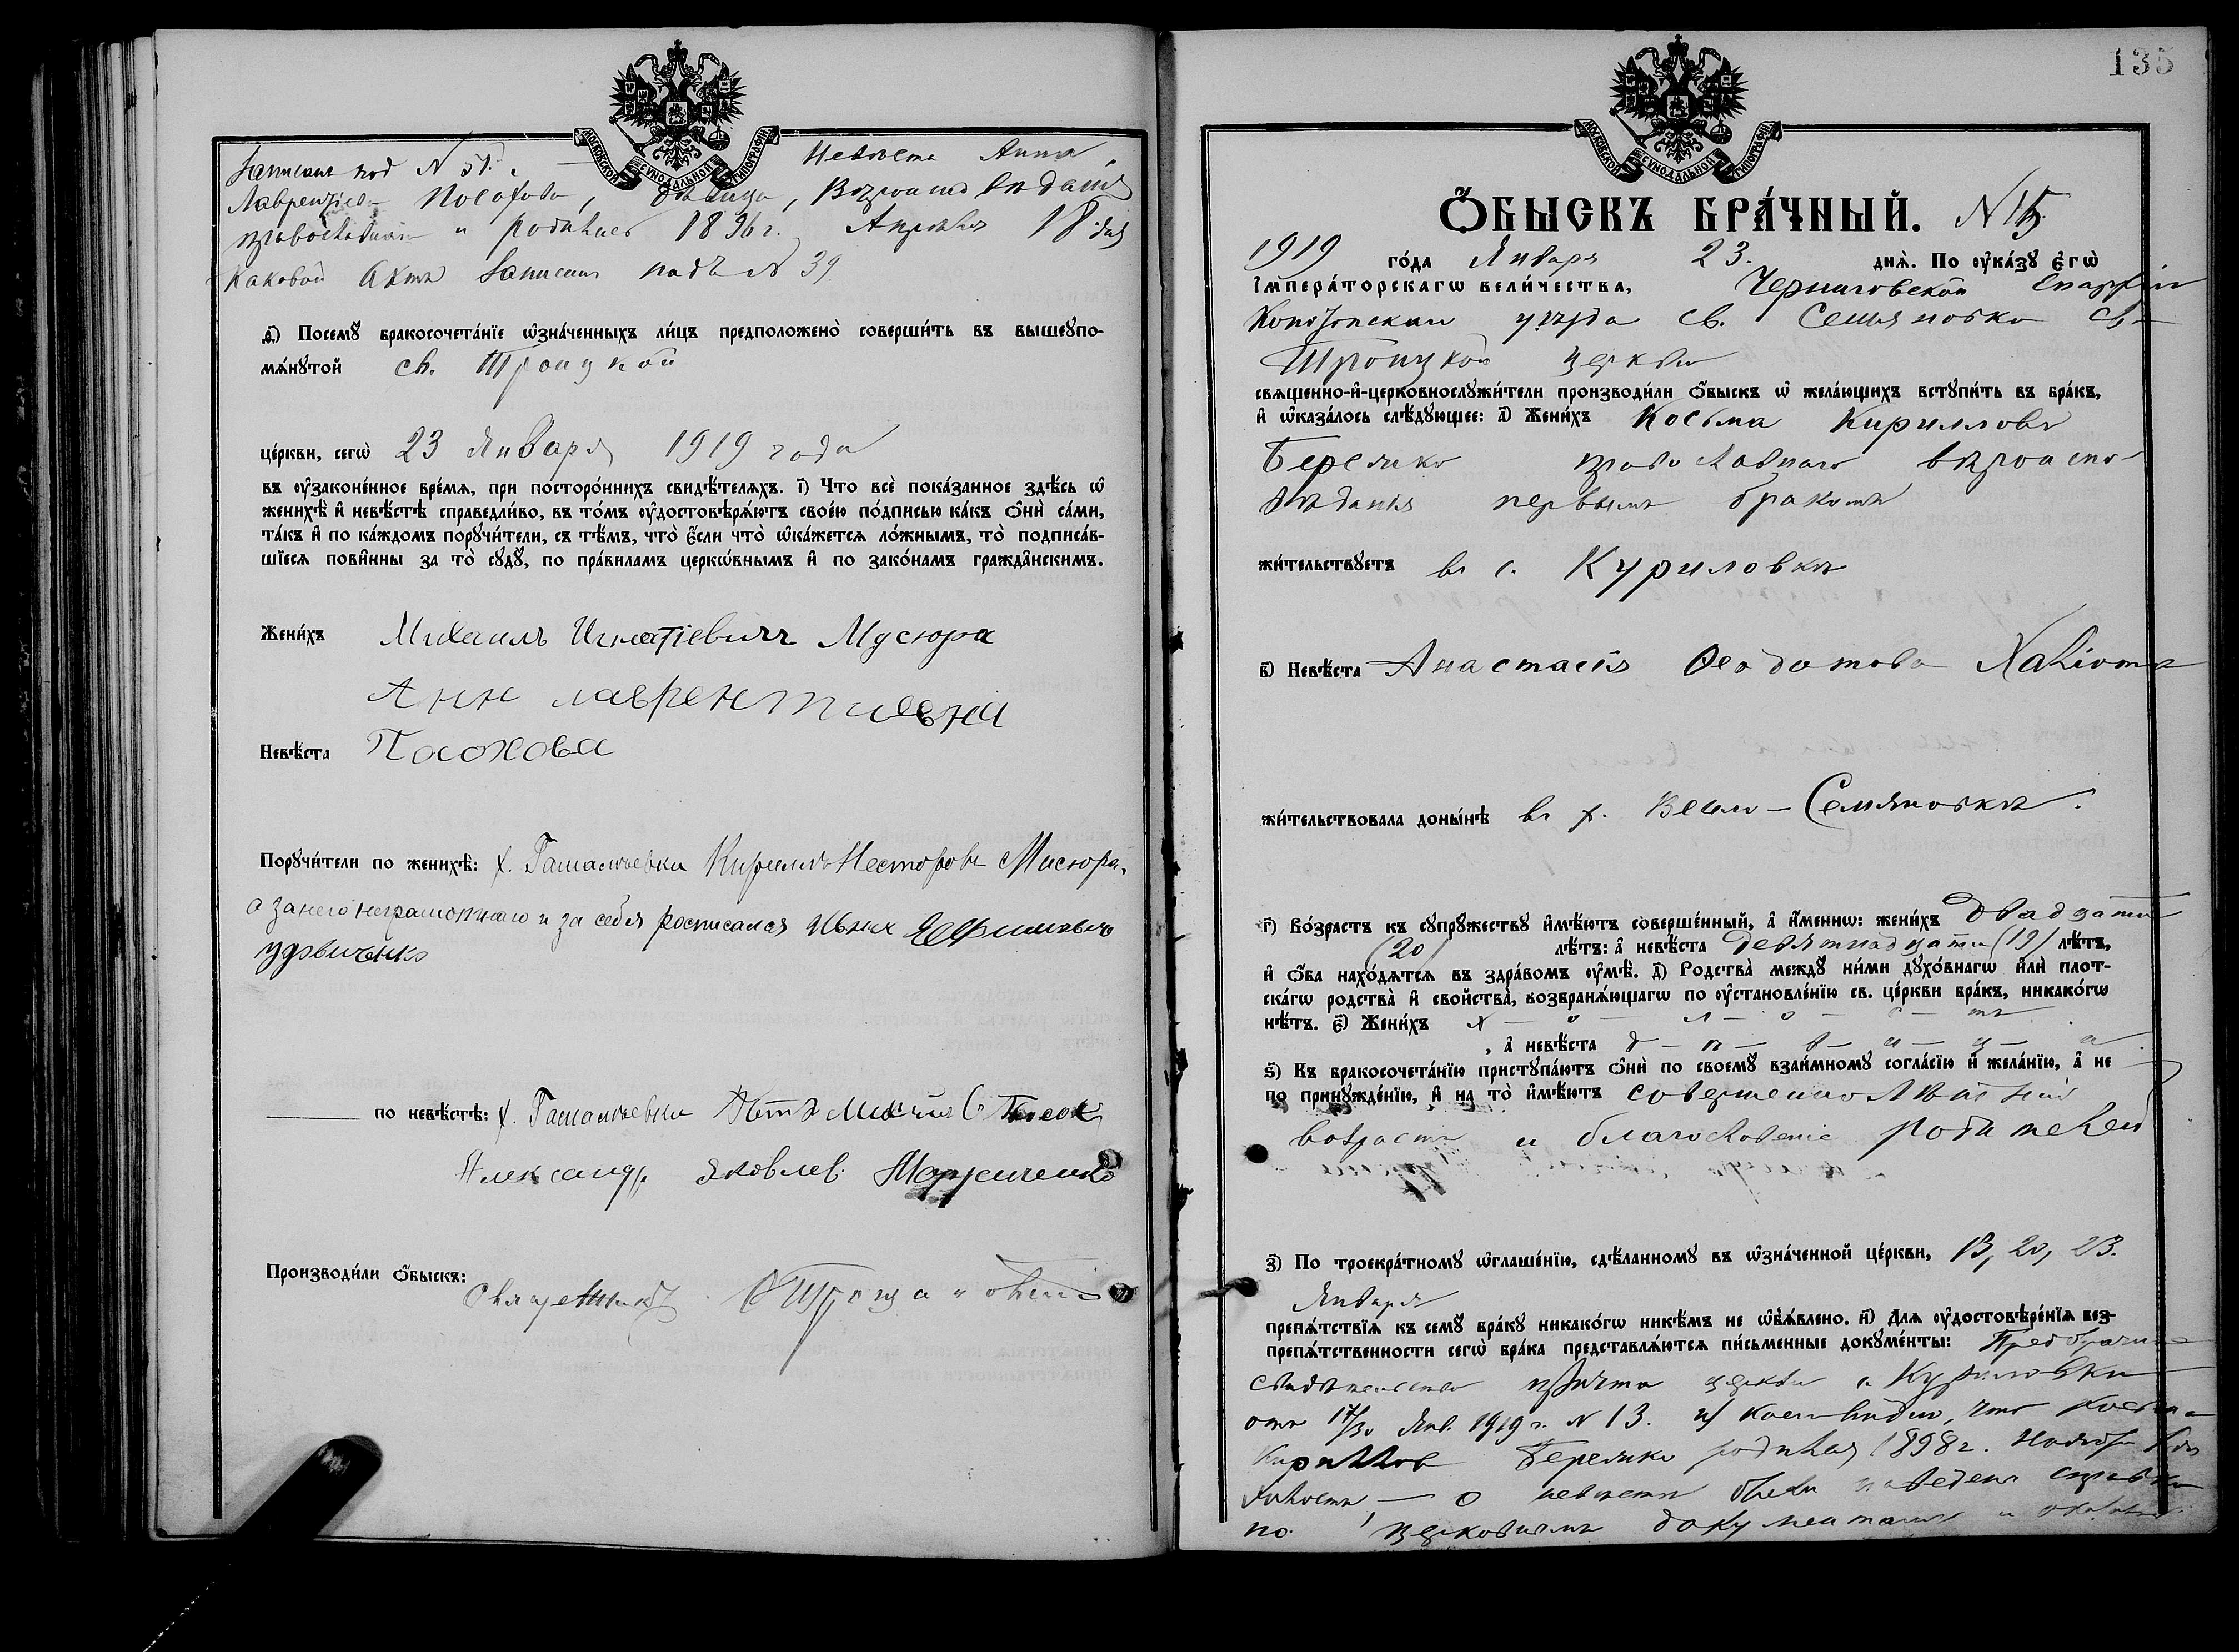 МОСКОВСКОЙ СУНОДАЛЬНОЙ ТИПОГРАФІИ
Записанъ под N 51. — Невѣста Анна
Лаврентіева Посохова, дѣвица, Вѣроисповѣданія
православнаго и родилась 1896 г. Апрѣля 18 дня
каковой Актъ Записанъ подъ N 39.
д҃і) Посемꙋ̀ бракосочета́нїе ѡ҆зна́ченныхъ ли́цъ предположено̀ соверши́ть въ вышеꙋпо-
мѧ́нꙋтой св. Троицкой
це́ркви, сегѡ̀ 23 Января 1919 года
въ ᲂу҆законе́нное вре́мѧ, при посторо́ннихъ свидѣ́телѧхъ. і҃) Что всѐ пока́занное здѣ́сь ѡ҆
женихѣ̀ и҆ невѣ́стѣ справедли́во, въ то́мъ ᲂу҆достовѣрѧ́ютъ свое́ю по́дписью ка́къ ѻ҆нѝ са́ми,
та́къ и҆ по ка́ждомъ порꙋчи́тели, съ тѣ́мъ, что̀ є҆́сли что̀ ѡ҆ка́жетсѧ ло́жнымъ, то̀ подписа́в-
шїесѧ пови́нны за то̀ сꙋдꙋ̀, по пра́виламъ церко́внымъ и҆ по зако́намъ гражда̂нскимъ.
Жени́хъ Михаилъ Игнатіевичъ Мусюра
Анн лаврентиевна
Невѣ́ста Посохова
Порꙋчи́тели по женихѣ̀: х. Гамалѣевки Кириллъ Несторовъ Мисюра,
а за него неграмотнаго и за себя росписался
по невѣ́стѣ: х. Гамалѣевки
Александр. Яковлев.
Производи́ли ѻ҆́быскъ:
Священникъ
135
МОСКОВСКОЙ СУНОДАЛЬНОЙ ТИПОГРАФІИ
Ѻ҆́БЫСКЪ БРА́ЧНЫЙ. N 15.
1919 го́да Января 23. днѧ̀. По ᲂу҆ка́зꙋ є҆гѡ̀
і҆мпера́торскагѡ вели́чества, Черниговской Епархіи
Конотопскаго уѣзда с. Семяновка св.
Троицкой церкви
свѧщенно-и҆-церковнослꙋжи́тели производи́ли ѻ҆́быскъ ѡ҆ жела́ющихъ встꙋпи́ть въ бра́къ,
и҆ ѡ҆каза́лось слѣ́дꙋющее: а҃) Жени́хъ Косьма Кирилловъ
православнаго вѣроиспо-
вѣданія первымъ бракомъ
жи́тельствꙋетъ въ с. Куриловкѣ
в҃) Невѣ́ста Анастасія Ѳеодотова
жи́тельствовала доны́нѣ въ х. Семяновкѣ.
г҃) Во́зрастъ къ сꙋпрꙋ́жествꙋ и҆мѣ́ютъ соверше́нный, а҆ и҆́менно: жени́хъ Двадцати
(20) лѣ́тъ: а҆ невѣ́ста Девятнадцати (19) лѣ́тъ,
и҆ ѻ҆́ба нахо́дѧтсѧ въ здра́вомъ ᲂу҆мѣ̀. д҃) Родства̀ междꙋ̀ ни́ми дꙋхо́внагѡ и҆лѝ плот-
ска́гѡ родства̀ и҆ свойства̀, возбранѧ́ющагѡ по ᲂу҆становле́нїю св. це́ркви бра́къ, никако́гѡ
нѣ́тъ. є҃) Жени́хъ х — о — л — о — с — тъ
, а҆ невѣ́ста д — ѣ — в — и — ц — а
ѕ҃) Къ бракосочета́нїю пристꙋпа́ютъ ѻ҆нѝ по своемꙋ̀ взаи́мномꙋ согла́сїю и҆ жела́нїю, а҆ не
по принꙋжде́нїю, и҆ на то̀ и҆мѣ́ютъ совершеннолѣтній
возрастъ и благословеніе родителей
з҃) По троекра́тномꙋ ѡ҆глаше́нїю, сдѣ́ланномꙋ въ ѡ҆зна́ченной це́ркви, 13, 20, 23.
Января
препѧ́тствїѧ къ семꙋ̀ бра́кꙋ никако́гѡ никѣ́мъ не ѡ҆б̾ѧ́влено. и҃) Длѧ ᲂу҆достовѣре́нїѧ без-
препѧ́тственности сегѡ̀ бра́ка представлѧ́ютсѧ пи́сьменные докꙋме́нты: Предбрачное
свидѣтельство причта церкви с. Куриловки
отъ 17/30 Янв. 1919 г. N 13. из коего видно, что Косьма
Кириллов родился 1898 г.
холостъ, — о невѣстѣ были наведены справки
по церковнымъ документамъ и